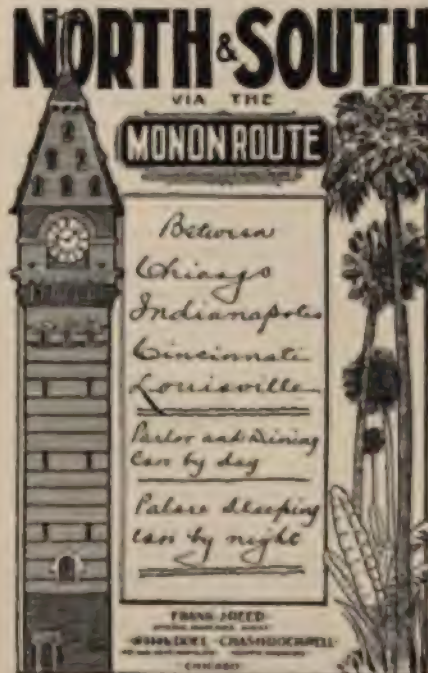 NORTH & SOUTH
VIA THE
MONON ROUTE
Between
Chicago
Indianapolis
Cincinnati
Louisville
Parlor and Dining
Cars by day
Palace Sleeping
Cars by night
FRANK J REED
CHAS H ROCKWELL
CHICAGO